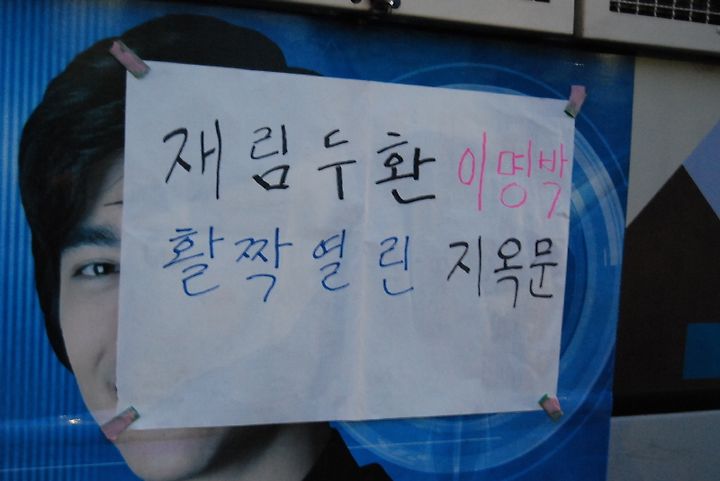 재림두환 이명박
활짝 열린 지옥문